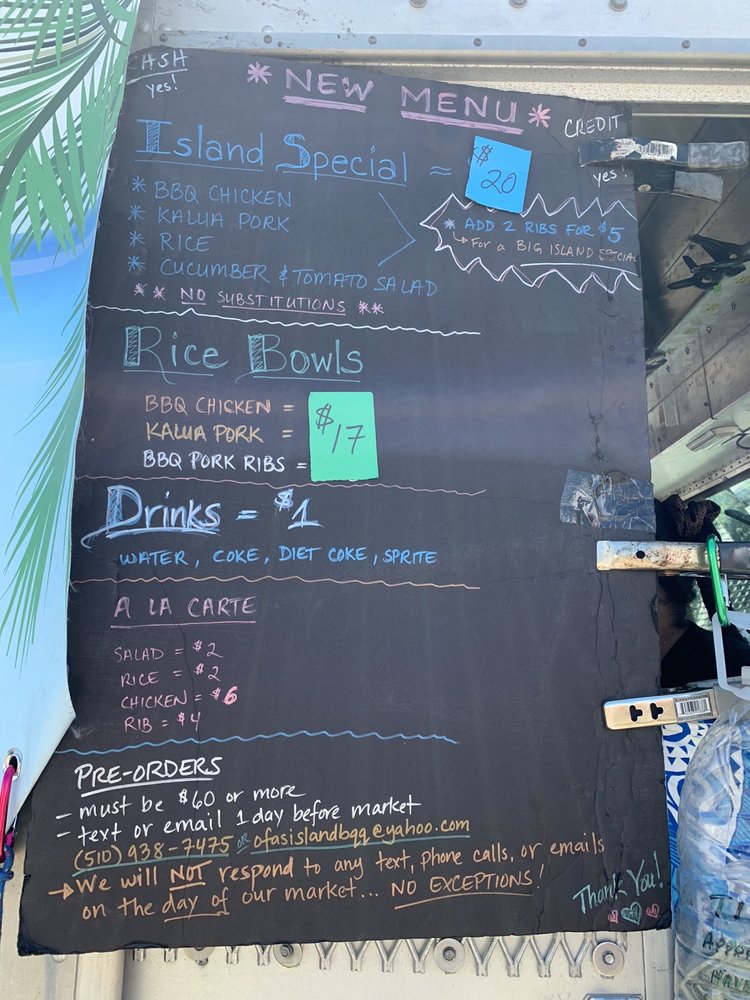 CASH
yes!
* NEW MENU *
CREDIT
yes!
Island Special = $20
* BBQ CHICKEN
* KALUA PORK
* RICE
* CUCUMBER & TOMATO SALAD
* ADD 2 RIBS FOR $5
↳ For a BIG ISLAND SPECIAL
** NO SUBSTITUTIONS **
Rice Bowls
BBQ CHICKEN =
KALUA PORK =
BBQ PORK RIBS =
$17
Drinks = $1
WATER, COKE, DIET COKE, SPRITE
A LA CARTE
SALAD = $2
RICE = $2
CHICKEN = $6
RIB = $4
PRE-ORDERS
- must be $60 or more
- text or email 1 day before market
(510) 938-7475 or ofasislandbqq@yahoo.com
→ We will NOT respond to any text, phone calls, or emails
on the day of our market... NO EXCEPTIONS!
Thank You!